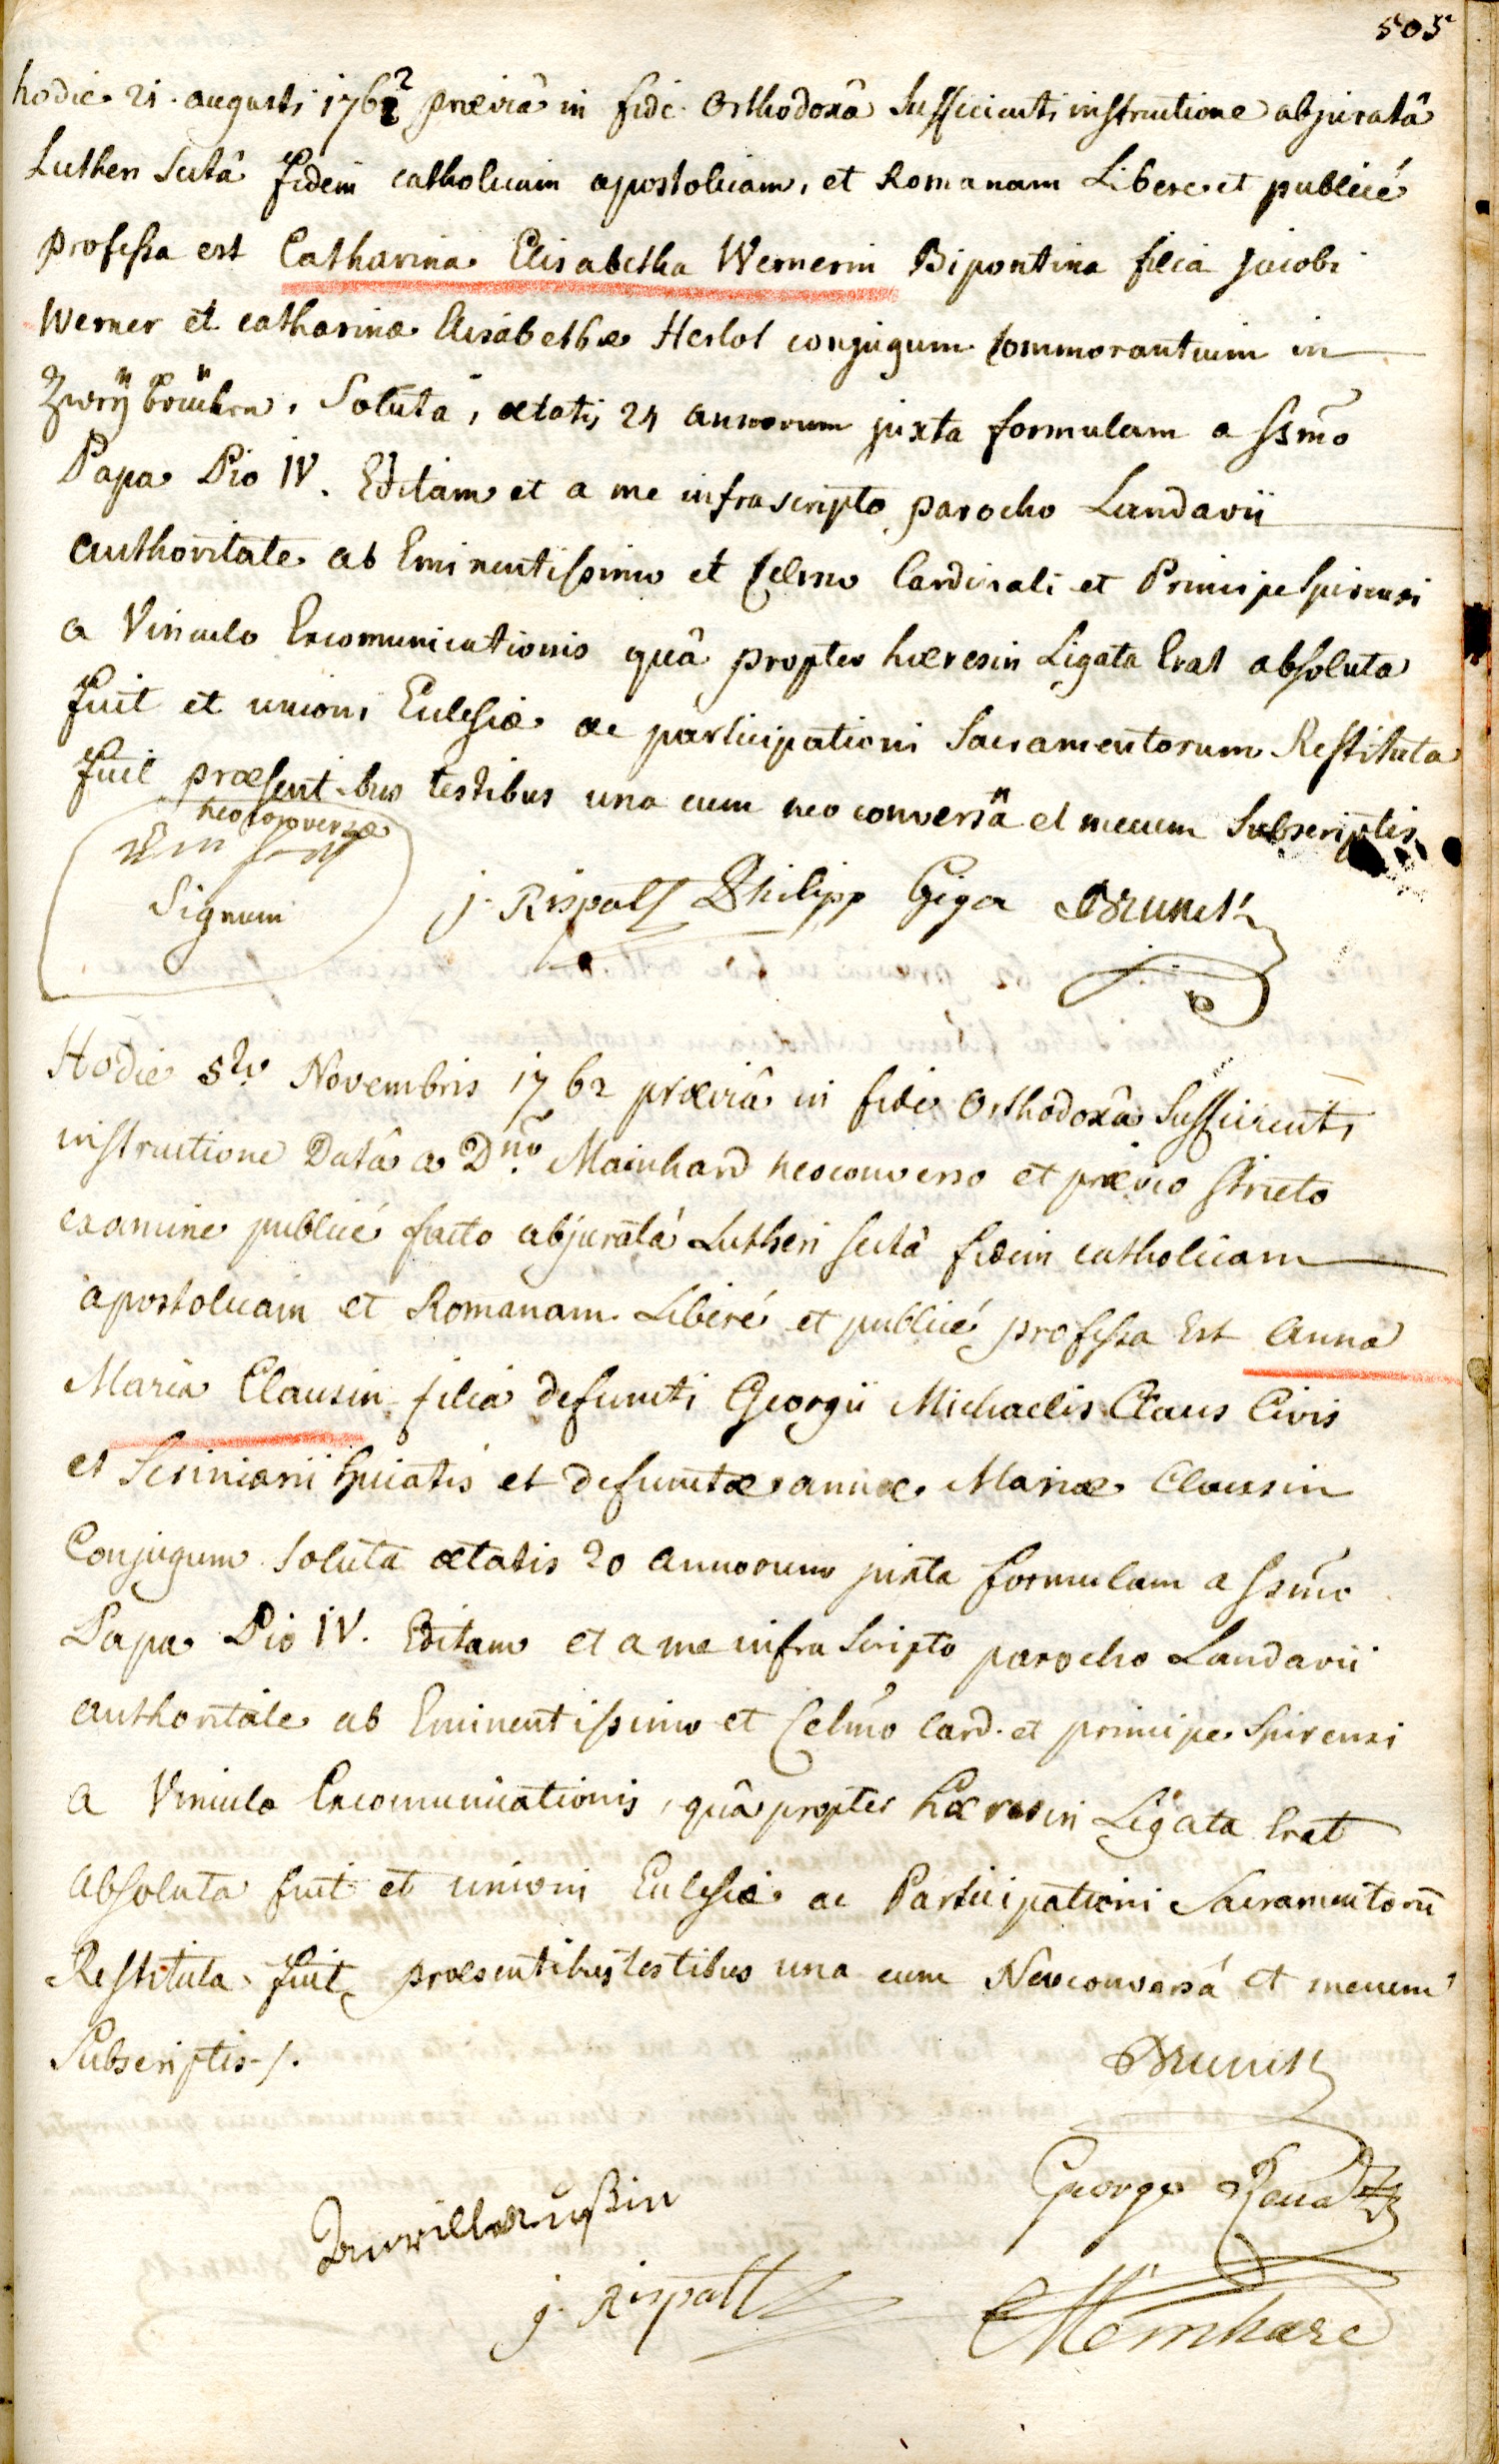 505
hodie 21 augusti 1762 præviâ in fide Orthodoxâ Sufficienti instructione abjuratâ
Lutheri Sectâ fidem catholicam apostolicam, et Romanam Libere et publicé
professa est Catharina Elisabetha Wernerin Bipontina filia jacobi
Werner et catharinæ Elisabethæ conjugum Commorantium in
Zweÿbrücken, Soluta, ætatis 24 annorum juxta formulam a ssmo
Papa Pio IV. Editam et a me infrascripto parocho Landavii
authoritate ab Eminentissimo et Celmo Cardinali et Principe Spirensi
a Vinculo Excomunicationis quâ propter hæresin Ligata Erat absoluta
fuit et unioni Eclesiæ ac participationi Sacramentorum Restituta
fuit præsentibus testibus una cum neo conversa et mecum Subscriptis
neo conversæ
Signum
j. Rispalt Philipp Giga Brunck
Hodie 5ta Novembris 1762 præviâ in fide Orthodoxâ Sufficienti
instructione Datâ a Dno Mainhard neoconverso et prævio stricto
examine publicé facto abjuratâ Lutheri sectâ fidem catholicam
apostolicam et Romanam Liberé et publicé professa Est Anna
Maria Clausin filia defuncti Georgii Michaelis Claus Civis
et Scriniarii hujatis et defunctæ annæ Mariæ Clausin
Conjugum Soluta ætatis 20 annorum juxta formulam a ssmo
Papa Pio IV. Editam et a me infra Scripto parocho Landavii
authoritate ab Eminentissimo et Celmo Card. et principe Spirensi
a Vinculo Excomunicationis, quâ propter hæresin Ligata Erat
absoluta fuit et unioni Eclesiæ ac Participationi Sacramentorū
Restituta fuit, præsentibus testibus una cum Neoconversâ et mecum
Subscriptis /.
Brunck
George
j. Rispalt
Meinhard